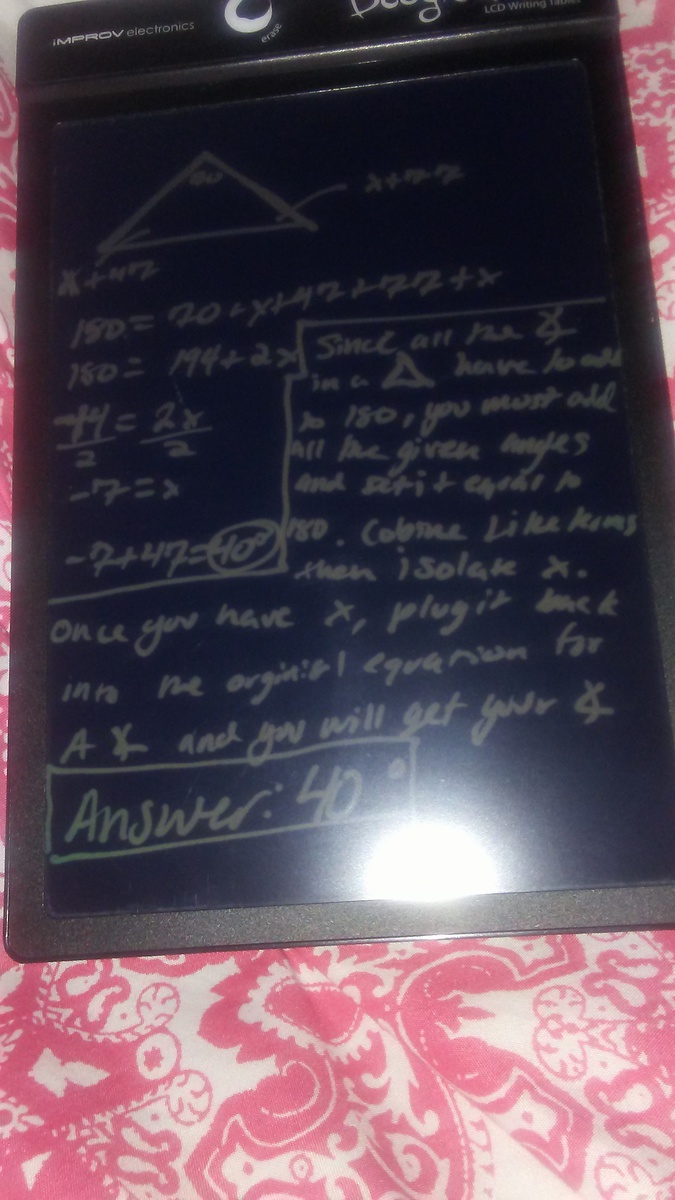 iMPROV electronics
erase
Boogi
LCD Writing Tablet
x+77
x+47
180 = 70+x+47+77+x
180 = 194+2x
-14 = 2x
2 2
-7 = x
-7+47=40°
Since all the ∡
in a △ have to add
to 180, you must add
all the given angles
and set it equal to
180. Cobine Like terms
then isolate x.
Once you have x, plug it back
into the orginial equation for
A ∡ and you will get your ∡
Answer: 40°